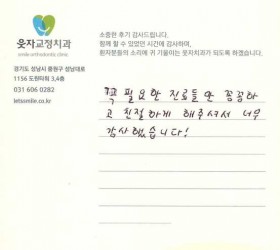 웃자교정치과
smile orthodontic clinic
경기도 성남시 중원구 성남대로
1156 도원타워 3,4층
031 606 0282
letssmile.co.kr
소중한 후기 감사드립니다.
함께 할 수 있었던 시간에 감사하며,
환자분들의 소리에 귀 기울이는 웃자교정치과가 되도록 하겠습니다.
꼭 필요한 진료들만 꼼꼼하
고 친절하게 해주셔서 너무
감사했습니다!